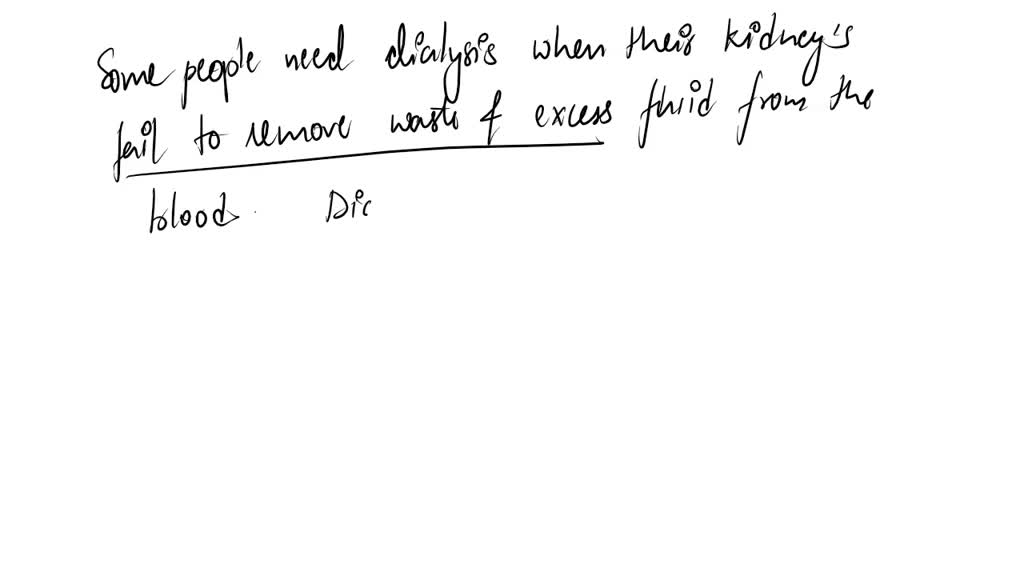 Some people need dialysis when their kidney's
fail to remove waste & excess fluid from the
blood. Dia